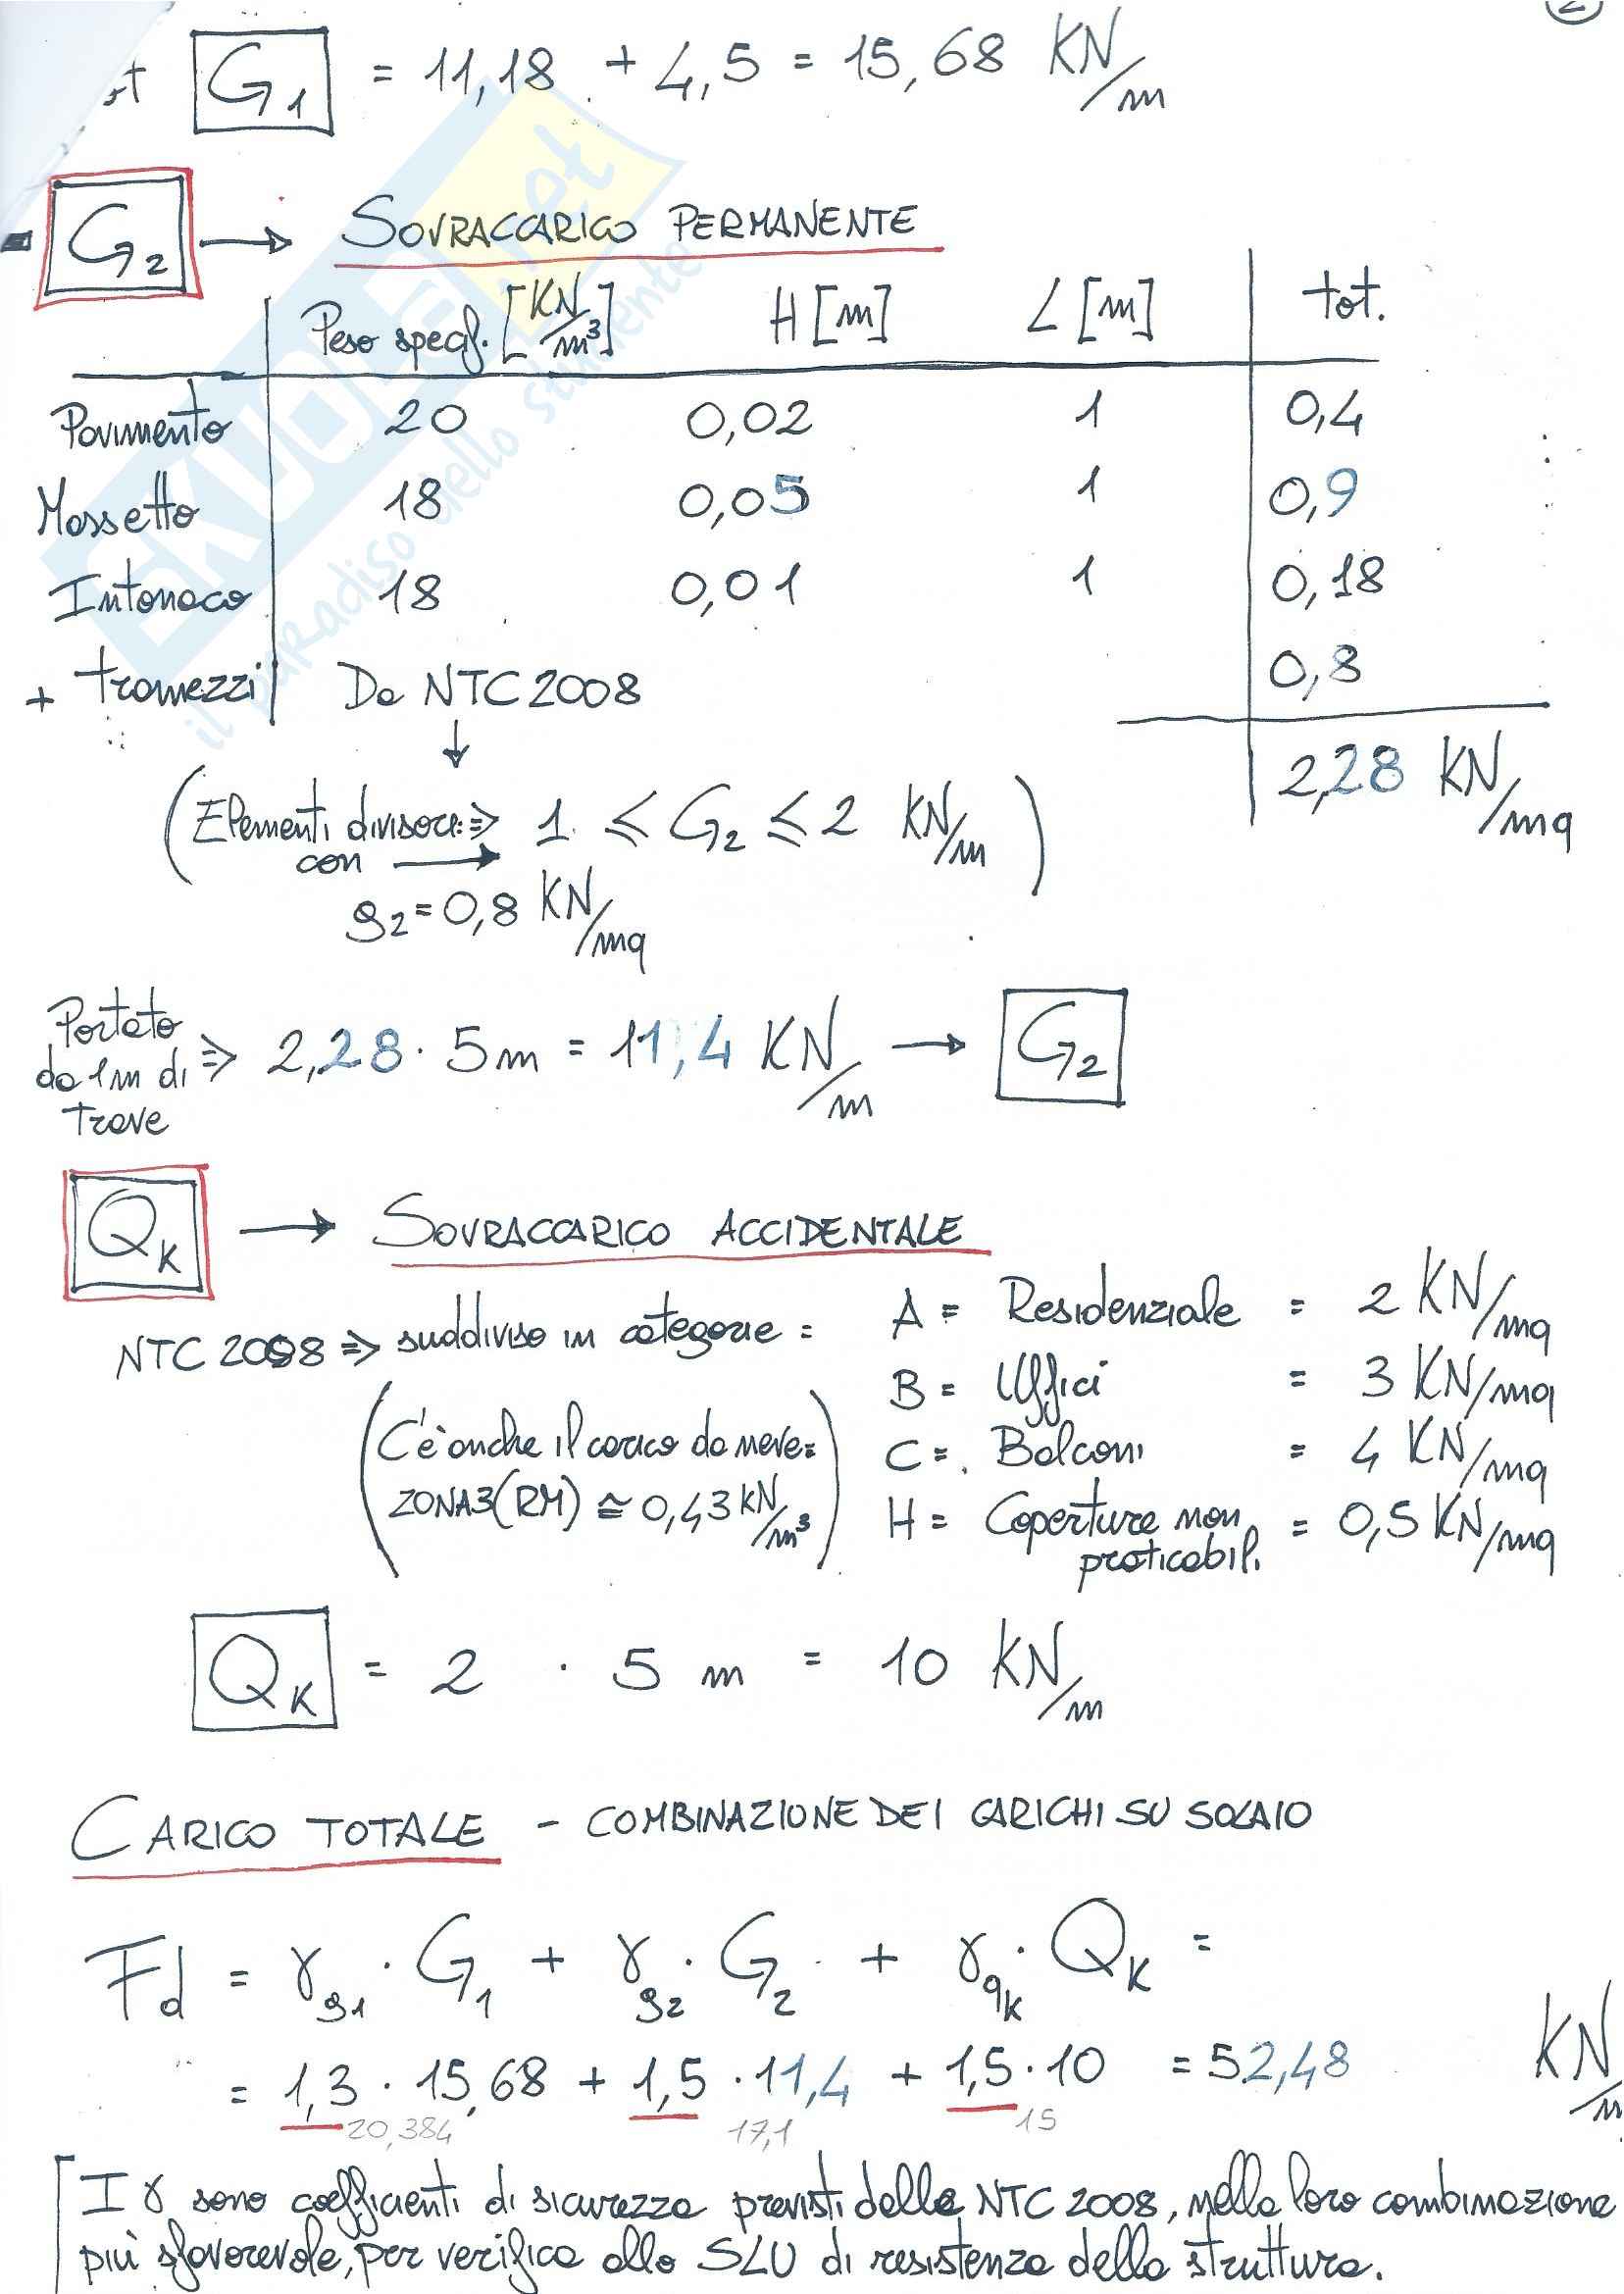 2
tot G1 = 11,18 + 4,5 = 15,68 KN/m
- G2 → SOVRACCARICO PERMANENTE
Peso specif. [KN/m³] H [m] L [m] tot.
Pavimento 20 0,02 1 0,4
Massetto 18 0,05 1 0,9
Intonaco 18 0,01 1 0,18
+ tramezzi Da NTC 2008 0,8
↓
2,28 KN/mq
(Elementi divisori ⇒ 1 ≤ G2 ≤ 2 KN/m)
con →
g2 = 0,8 KN/mq
Portato
da 1m di ⇒ 2,28 · 5m = 11,4 KN/m → G2
trave
QK → SOVRACCARICO ACCIDENTALE
NTC 2008 ⇒ suddiviso in categorie = A = Residenziale = 2 KN/mq
B = Uffici = 3 KN/mq
(C'è anche il carico da neve = C = Balconi = 4 KN/mq
ZONA3 (RM) ≅ 0,43 kN/m³) H = Coperture non = 0,5 KN/mq
praticabili
QK = 2 · 5 m = 10 KN/m
CARICO TOTALE - COMBINAZIONE DEI CARICHI SU SOLAIO
Fd = γg1 · G1 + γg2 · G2 + γqk · QK =
= 1,3 · 15,68 + 1,5 · 11,4 + 1,5 · 10 = 52,48 KN/m
20,384 17,1 15
I γ sono coefficienti di sicurezza previsti dalle NTC 2008, nella loro combinazione
più sfavorevole, per verifica allo SLU di resistenza della struttura.
SKUOLA.net
il paradiso dello studente